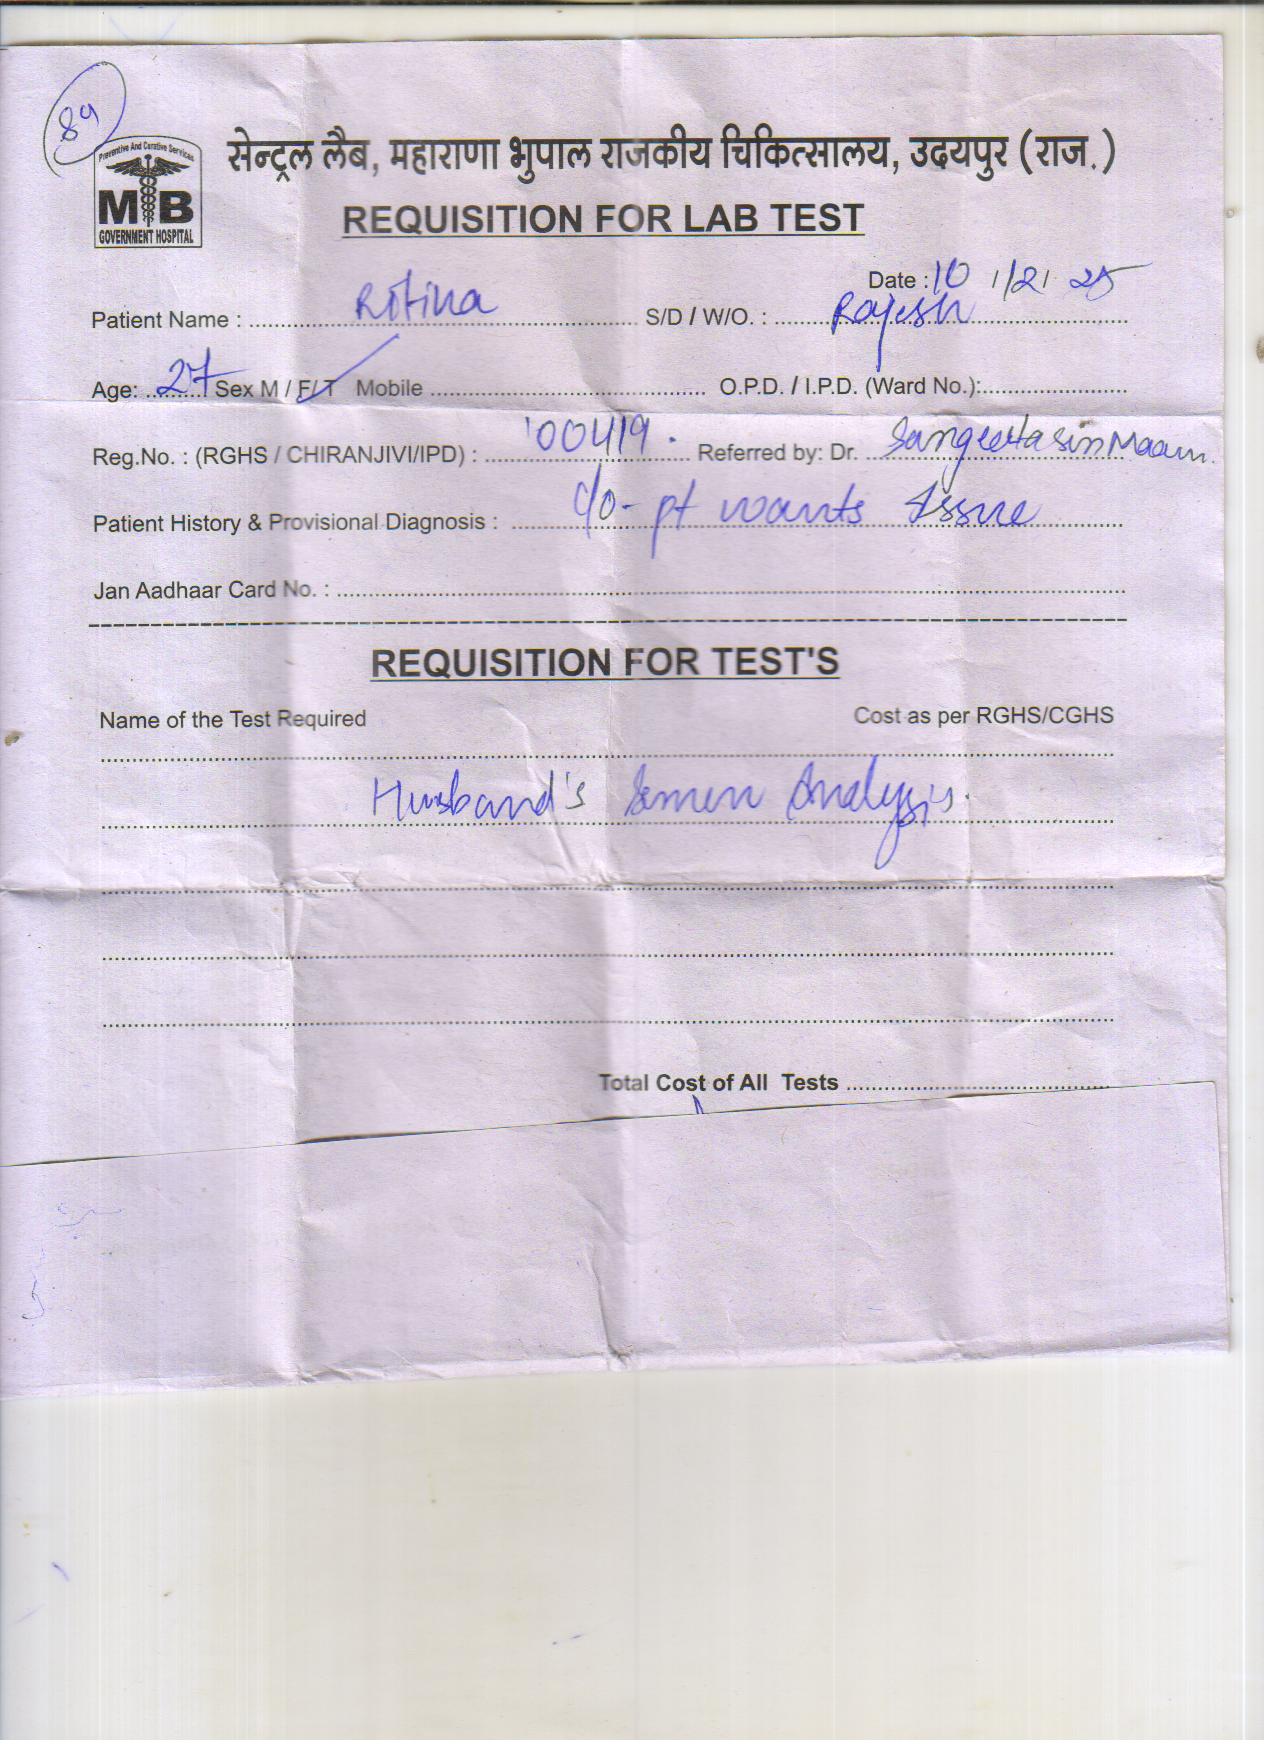 89
Preventive And Curative Services
MB
GOVERNMENT HOSPITAL
सेन्ट्रल लैब, महाराणा भुपाल राजकीय चिकित्सालय, उदयपुर (राज.)
REQUISITION FOR LAB TEST
Date : 10 /12/ 25
Patient Name : ........ Rotina ........ S/D / W/O. : ........ Rajesh ........
Age: 27 Sex M / F/ T Mobile ........ O.P.D. / I.P.D. (Ward No.):........
Reg.No. : (RGHS / CHIRANJIVI/IPD) : ........ '00419 . Referred by: Dr. Sangeeta Maam.
Patient History & Provisional Diagnosis : ........ c/o - pt wants Issue
Jan Aadhaar Card No. : ........
REQUISITION FOR TEST'S
Name of the Test Required Cost as per RGHS/CGHS
Husband's Semen Analysis.
Total Cost of All Tests ........